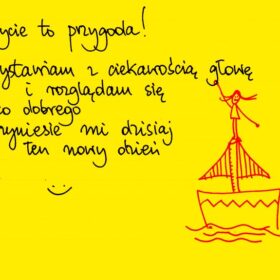 ycie to przygoda!
ystawiam z ciekawością głowę
i rozglądam się
co dobrego
zyniesie mi dzisiaj
ten nowy dzień